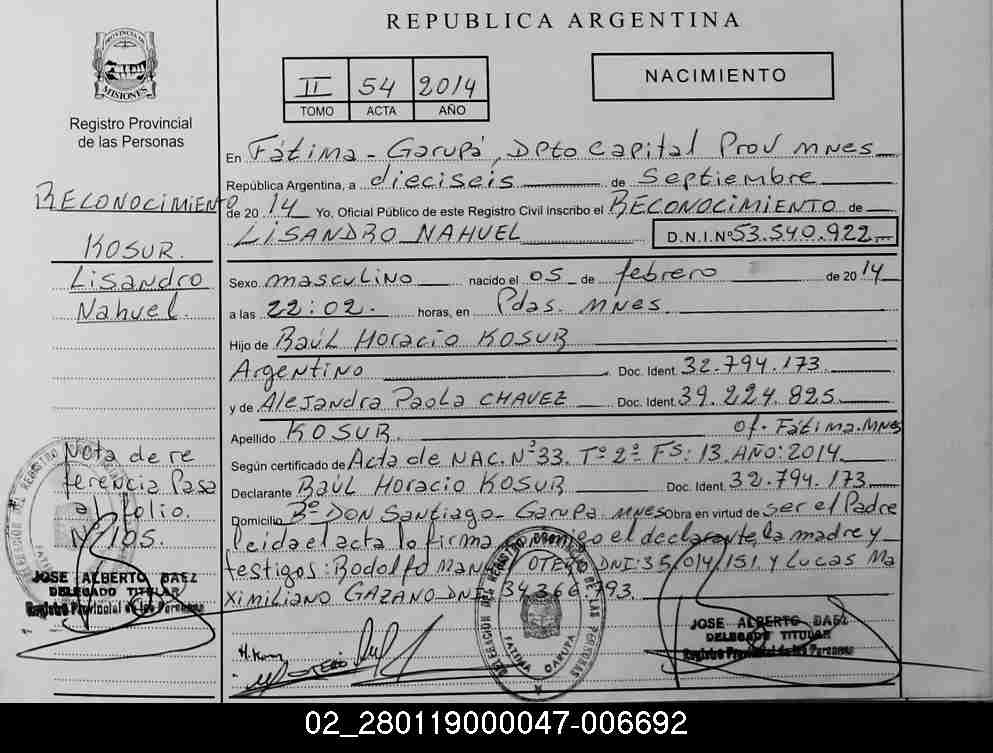 REPUBLICA ARGENTINA
PROVINCIA DE MISIONES
Registro Provincial
de las Personas
II 54 2014
TOMO ACTA AÑO
NACIMIENTO
RECONOCIMIENTO
KOSUR.
Lisandro
Nahuel.
En Fátima - Garupá, Dpto Capital Prov MNES
República Argentina, a dieciseis de Septiembre
de 2014 Yo, Oficial Público de este Registro Civil inscribo el RECONOCIMIENTO de
LISANDRO NAHUEL D.N.I.Nº 53.540.922
Sexo masculino nacido el 05 de febrero de 2014
a las 22:02. horas, en Pdas. MNES
Hijo de Raúl Horacio KOSUR
Argentino Doc. Ident. 32.794.173
y de Alejandra Paola CHAVEZ Doc. Ident. 39.224.825
Apellido KOSUR. Of. Fátima. MNES
Según certificado de Acta de NAC. Nº 33. Tº 2º FS: 13. AÑO: 2014.
Declarante Raúl Horacio KOSUR Doc. Ident. 32.794.173
Domicilio Bº DON Santiago - Garupa MNES Obra en virtud de ser el Padre
leida el acta lo firma conmigo el declarante, la madre y
testigos: Rodolfo OTERO DNI: 35/014/151 y Lucas Ma
ximiliano GAZANO DNI 34366793.
Nota de re
ferencia Pasa
al folio.
Nº 105.
JOSE ALBERTO BAEZ
DELEGADO TITULAR
Registro Provincial de las Personas
DELEGACION DEL REGISTRO PROVINCIAL DE LAS PERSONAS
FATIMA GARUPA
JOSE ALBERTO BAEZ
DELEGADO TITULAR
Registro Provincial de las Personas
02_280119000047-006692